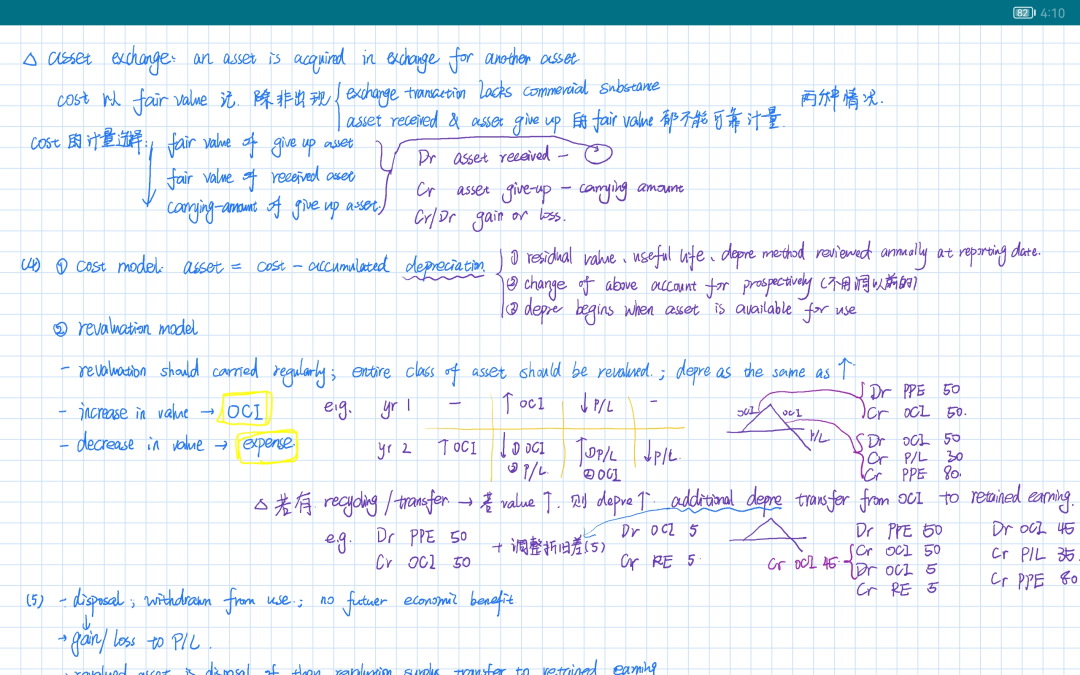 82 4:10
△ asset exchange: an asset is acquired in exchange for another asset
cost 以 fair value 记. 除非出现 { exchange transaction lacks commercial substane
asset received & asset give up 的 fair value 都不能可靠计量
两种情况.
cost 的计量选择: fair value of give up asset
fair value of received asset
carrying-amount of give up asset.
Dr asset received –
Cr asset give-up – carrying amount
Cr/Dr gain or loss.
(4) ① cost model: asset = cost – accumulated depreciation
① residual value、useful life、depre method reviewed annually at reporting date.
② change of above account for prospectively (不用调以前的)
③ depre begins when asset is available for use
② revaluation model
– revaluation should carried regularly; entire class of asset should be revalued.; depre as the same as ↑
– increase in value → OCI
– decrease in value → expense
e.g. yr 1 – ↑ OCI ↓ P/L –
yr 2 ↑ OCI ↓① OCI ② P/L. ↑① P/L ② OCI ↓ P/L.
OCI OCI P/L
Dr PPE 50
Cr OCI 50.
Dr OCI 50
Cr P/L 30
Cr PPE 80.
△ 若有 recycling/transfer → 若 value ↑. 则 depre ↑. additional depre transfer from OCI to retained earning.
e.g. Dr PPE 50
Cr OCI 50
+ 调整折旧差(5)
Dr OCI 5
Cr RE 5.
Cr OCI 45.
Dr PPE 50
Cr OCI 50
Dr OCI 5
Cr RE 5
Dr OCI 45
Cr P/L 35
Cr PPE 80
(5) – disposal; withdrawn from use.; no futuer economic benefit
→ gain/loss to P/L.
asset is disposal of then surplus transfer to retrined earning